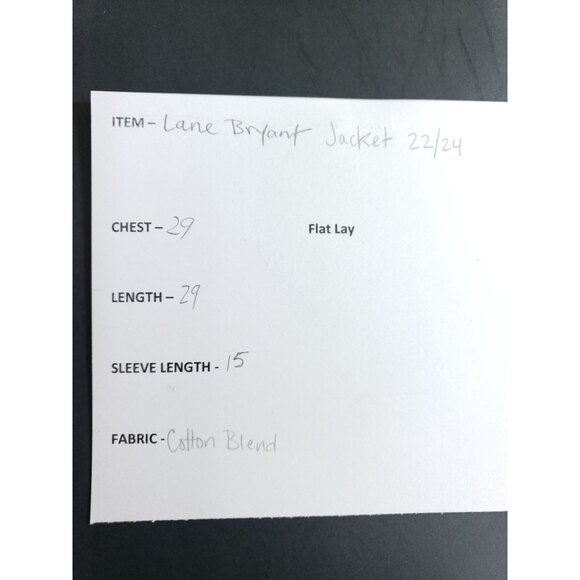 ITEM – Lane Bryant Jacket 22/24
CHEST – 29 Flat Lay
LENGTH – 29
SLEEVE LENGTH - 15
FABRIC - Cotton Blend